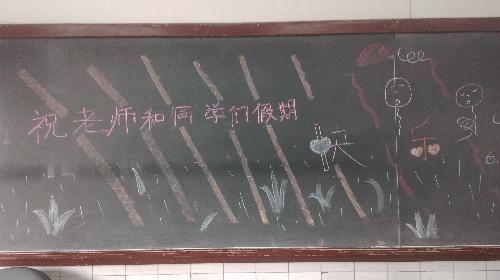 祝老师和同学们假期快乐